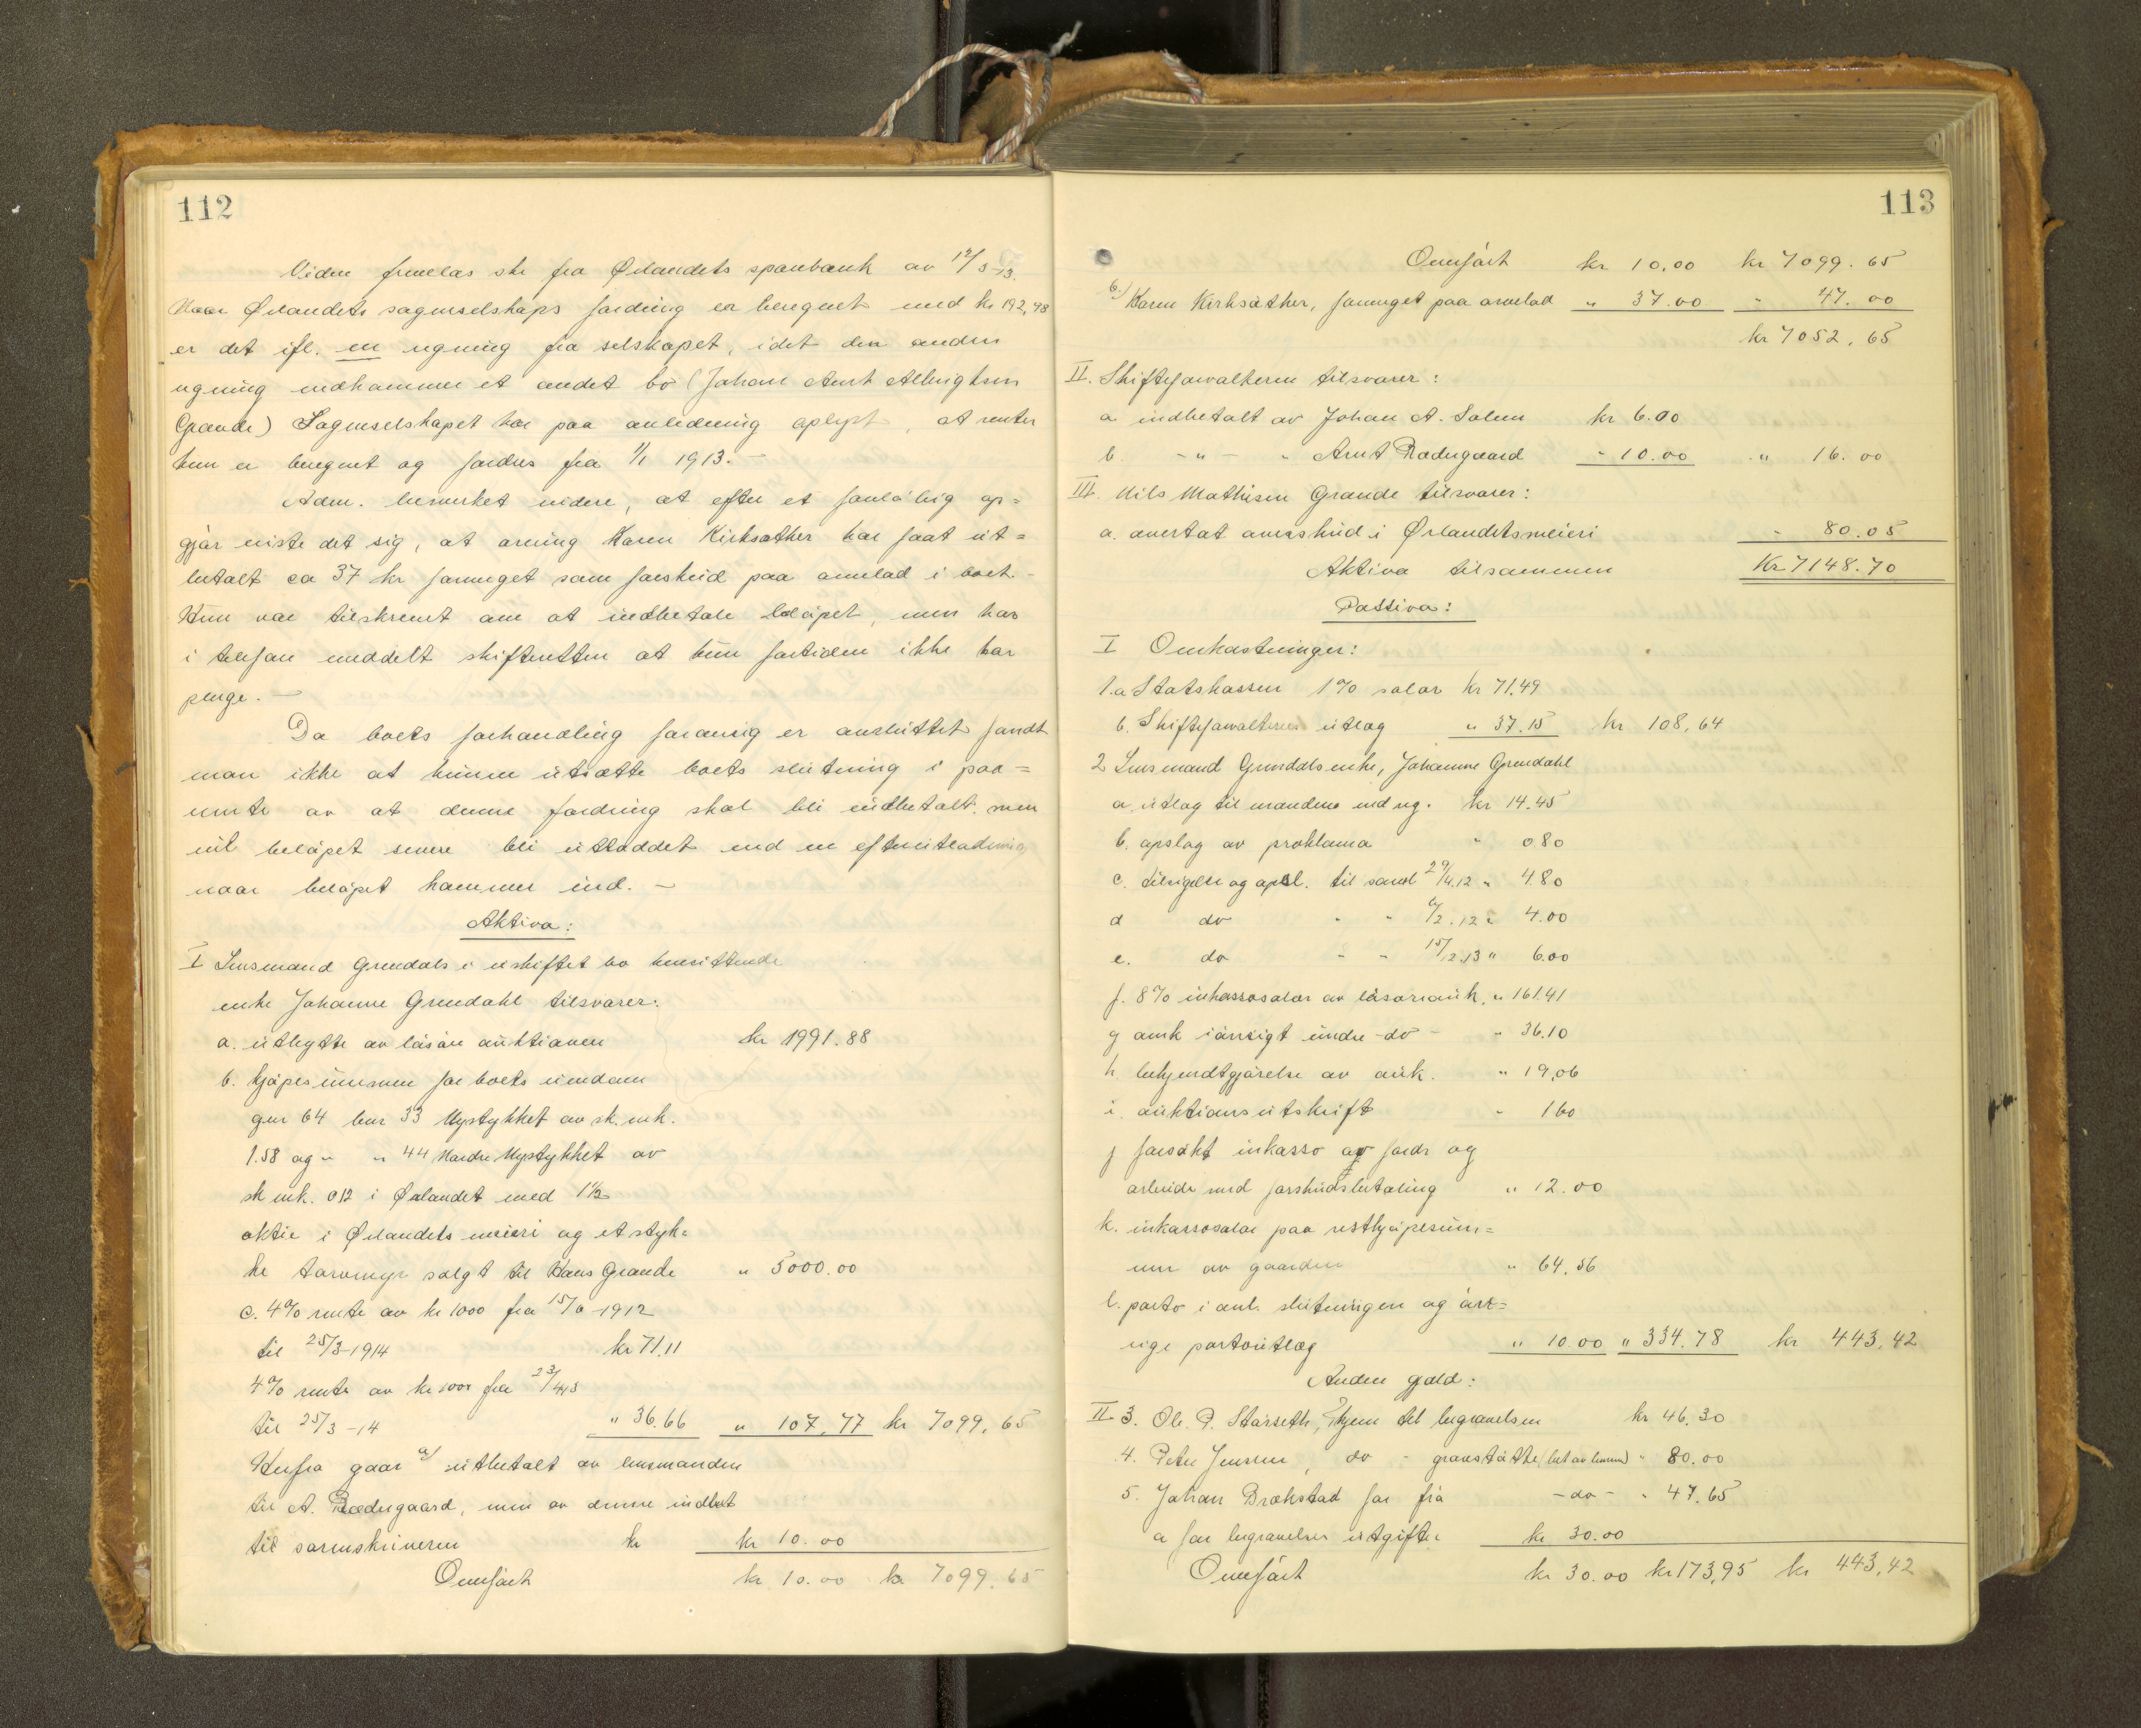 112
Videre fremlas skr fra Ørlandets sparebank av 17/3-13.
Naar Ørlandets sagmselskaps fordring er beregnet med kr 192,98
er det ifl. en regning fra selskapet, idet den anden
regning vedkommer et andet bo (Johan Arnt Albrigtsen
Grande) Sagmselskapet har paa anledning oplyst, at renter
kun er beregnet og fordres fra 1/1 1913. —
Adm. bemerket videre, at efter et foreløbig op=
gjør viste det sig, at arving Karen Kirksæther har faat ut=
betalt ca 37 kr formeget som forskud paa arvelod i boet. -
Hun var tilskrevet om at indbetale beløpet, men har
i telefon meddelt skifteretten at hun fortiden ikke har
penge. —
Da boets forhandling forøvrig er avsluttet fandt
man ikke at kunne utsætte boets slutning i paa=
vente av at denne fordring skal bli indbetalt. men
vil beløpet senere bli utloddet ved en efterutlodning
naar beløpet kommer ind. —
Aktiva:
I Lensmand Grendals i uskiftet bo hensittende
enke Johanne Grendahl tilsvarer:
a. utbytte av løsøre auktionen kr 1991.88
b. kjøpesummen for boets eiendom
gnr 64 bnr 33 Nystykket av sk. mk.
1.58 og " " 44 Nordre Nystykket av
sk mk. 012 i Ørlandet med 1 1/2
aktie i Ørlandets meieri og et styk=
ke torvmyr solgt til Hans Grande " 5000.00
c. 4% rente av kr 1000 fra 15/6 1912
til 25/3-1914 kr 71.11
4% rente av kr 1000 fra 23/4 13
til 25/3-14 " 36.66 " 107.77 kr 7099.65
Herfra gaar a/ utbetalt av lensmanden
til A. Rædergaard, men av denne indbet
til sorenskriveren kr kr 10.00
Overført kr 10.00 kr 7099.65
113
Overført kr 10.00 kr 7099.65
b/ Karen Kirksæther, formeget paa arvelod " 37.00 " 47.00
kr 7052.65
II. Skifteforvalteren tilsvarer:
a indbetalt av Johan A. Solem kr 6.00
b. - " - " Arnt Rædergaard " 10.00 " 16.00
III. Nils Mathisen Grande tilsvarer:
a. overtat overskud i Ørlandetsmeieri " 80.05
Aktiva tilsammen Kr 7148.70
Passiva:
I Omkostninger:
1.a Statskassen 1% salær kr 71.49
b. Skifteforvalterens utlæg " 37.15 kr 108.64
2 Lensmand Grendals enke, Johanne Grendahl
a. utlæg til mændene ved reg. kr 14.45
b. opslag av proklama " 0.80
c. tilsigelse og opsl. til saml 29/4.12 " 4.80
d do " " 6/2.12 " 4.00
e. do " " 15/12.13 " 6.00
f. 8% inkassosalær av løsøreauk. " 161.41
g omk iøvrigt under -do- " 36.10
h. bekjendtgjørelse av auk. " 19.06
i. auktionsutskrift " 1 60
j forsøkt inkasso av fordr og
arbeide med forskudsbetaling " 12.00
k. inkassosalær paa restkjøpesum=
men av gaarden " 64.56
l. porto i anl. slutningen og øv=
rige portoutlæg " 10.00 " 334.78 kr 443.42
Anden gjæld:
II 3. Ole P. Størseth, tjem til begravelsen kr 46.30
4. Peter Jenssen, do " gravstøtte (bet av lensm) " 80.00
5. Johan Brækstad for fra -do- " 47.65
a for begravelses utgifter kr 30.00
Overført kr 30.00 kr 173.95 kr 443.42